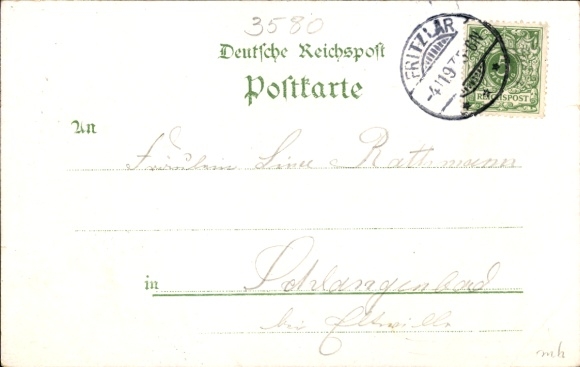 3580
Deutsche Reichspost
Postkarte
FRITZLAR
REICHSPOST
An
Fräulein Line
in Schlangenbad
bei Eltville
mh